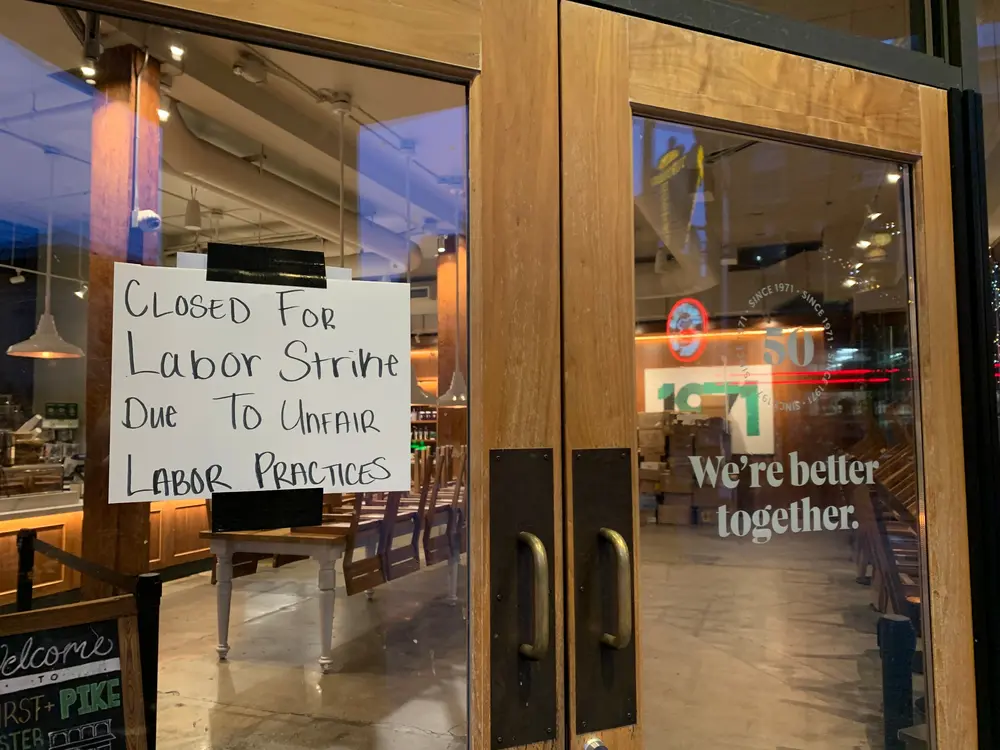 CLOSED FOR
Labor Strike
Due To UNFAIR
LABOR PRACTICES
elcome
TO
IRST+ PIKE
STER
SINCE 1971 · SINCE 1971 · SINCE 1971
50
1971
We're better
together.